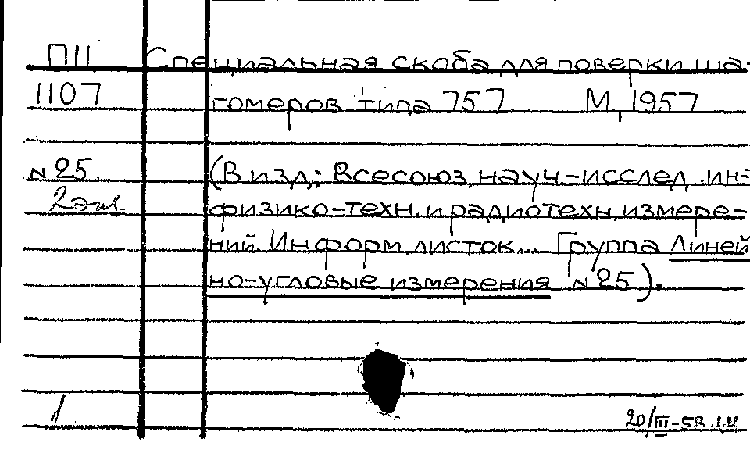 П11 Специальная скоба для поверки ша-
1107 гомеров типа 757 М, 1957
N 25 (В изд: Всесоюз. науч-исслед. ин-
2 экз. физико-техн. и радиотехн. измере-
ний. Информ. листок... Группа Линей
но-угловые измерения N 25).
1 20/III-58